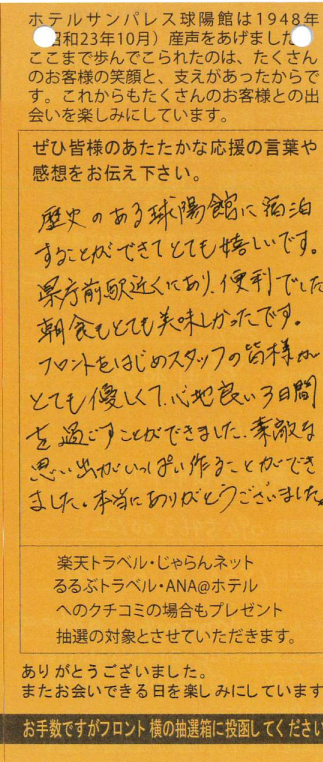 ホテルサンパレス球陽館は1948年
昭和23年10月）産声をあげました
ここまで歩んでこられたのは、たくさん
のお客様の笑顔と、支えがあったからで
す。これからもたくさんのお客様との出
会いを楽しみにしています。
ぜひ皆様のあたたかな応援の言葉や
感想をお伝え下さい。
歴史のある球陽館に宿泊
することができてとても嬉しいです。
県庁前駅近くにあり、便利でした
朝食もとても美味しかったです。
フロントをはじめスタッフの皆様が
とても優しくて、心地良い3日間
を過ごすことができました。素敵な
思い出がいっぱい作ることができ
ました。本当にありがとうございました。
楽天トラベル・じゃらんネット
るるぶトラベル・ANA@ホテル
へのクチコミの場合もプレゼント
抽選の対象とさせていただきます。
ありがとうございました。
またお会いできる日を楽しみにしています
お手数ですがフロント横の抽選箱に投函してください